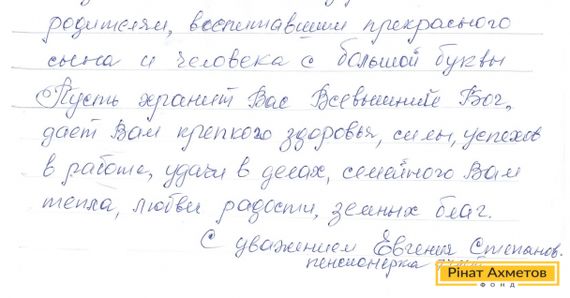 родителям, воспитавшим прекрасного
сына и человека с большой буквы
Пусть хранит Вас Всевышний Бог,
дает Вам крепкого здоровья, силы, успехов
в работе, удачи в делах, семейного Вам
тепла, любви радости, земных благ.
С уважением Евгения Степанов.
пенсионерка
Рінат Ахметов
ФОНД